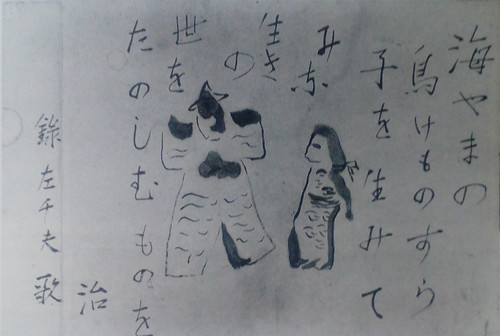 海やまの
鳥けものすら
子を生みて
みな
生き
の
世を
たのしむものを
治
錄左千夫歌